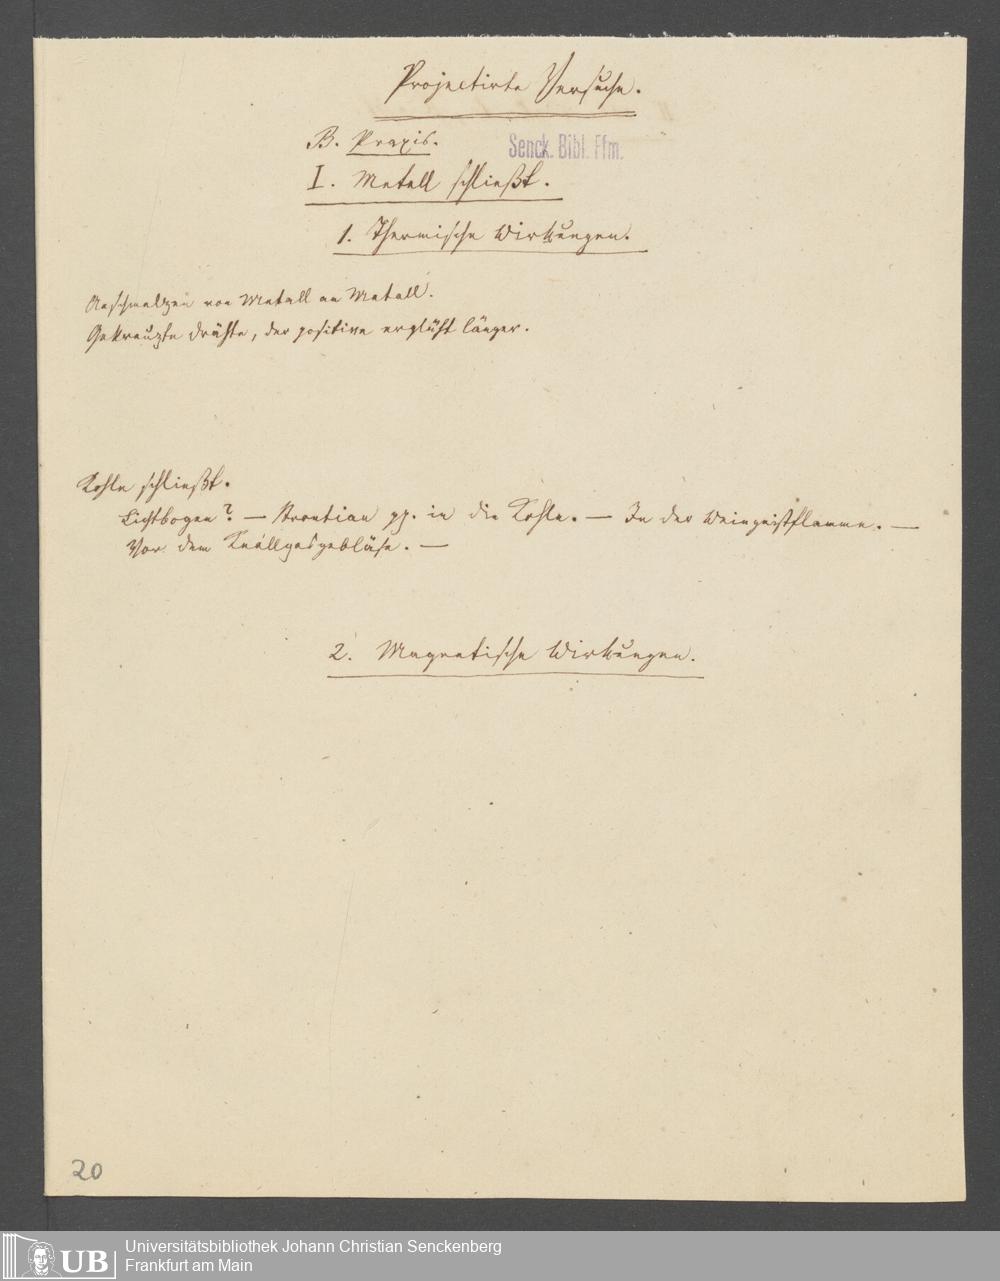 Projectirte Versuche.
B. Praxis.
Senck. Bibl. Ffm.
I. Metall schließt.
1. Thermische Wirkungen.
Anschmelzen von Metall an Metall.
Gekreuzte Drähte, der positive erglüht länger.
Kohle schließt.
Lichtbogen? — Strontian pp. in die Kohle. — In der Weingeistflamme. —
Vor dem Knallgasgebläse. —
2. Magnetische Wirkungen.
20
UB
Universitätsbibliothek Johann Christian Senckenberg
Frankfurt am Main